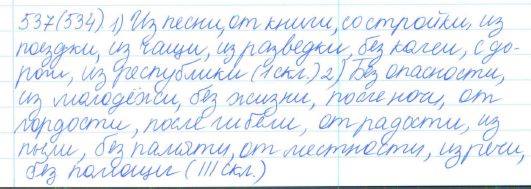 537(534) 1) Из песни, от книги, со стройки, из
поездки, из чащи, из разведки, без колеи, с до-
роги, из республики (I скл.) 2) Без опасности,
из молодёжи, без жизни, после ночи, от
гордости, после гибели, от радости, из
пыли, без памяти, от местности, из речи,
без помощи (III скл.)